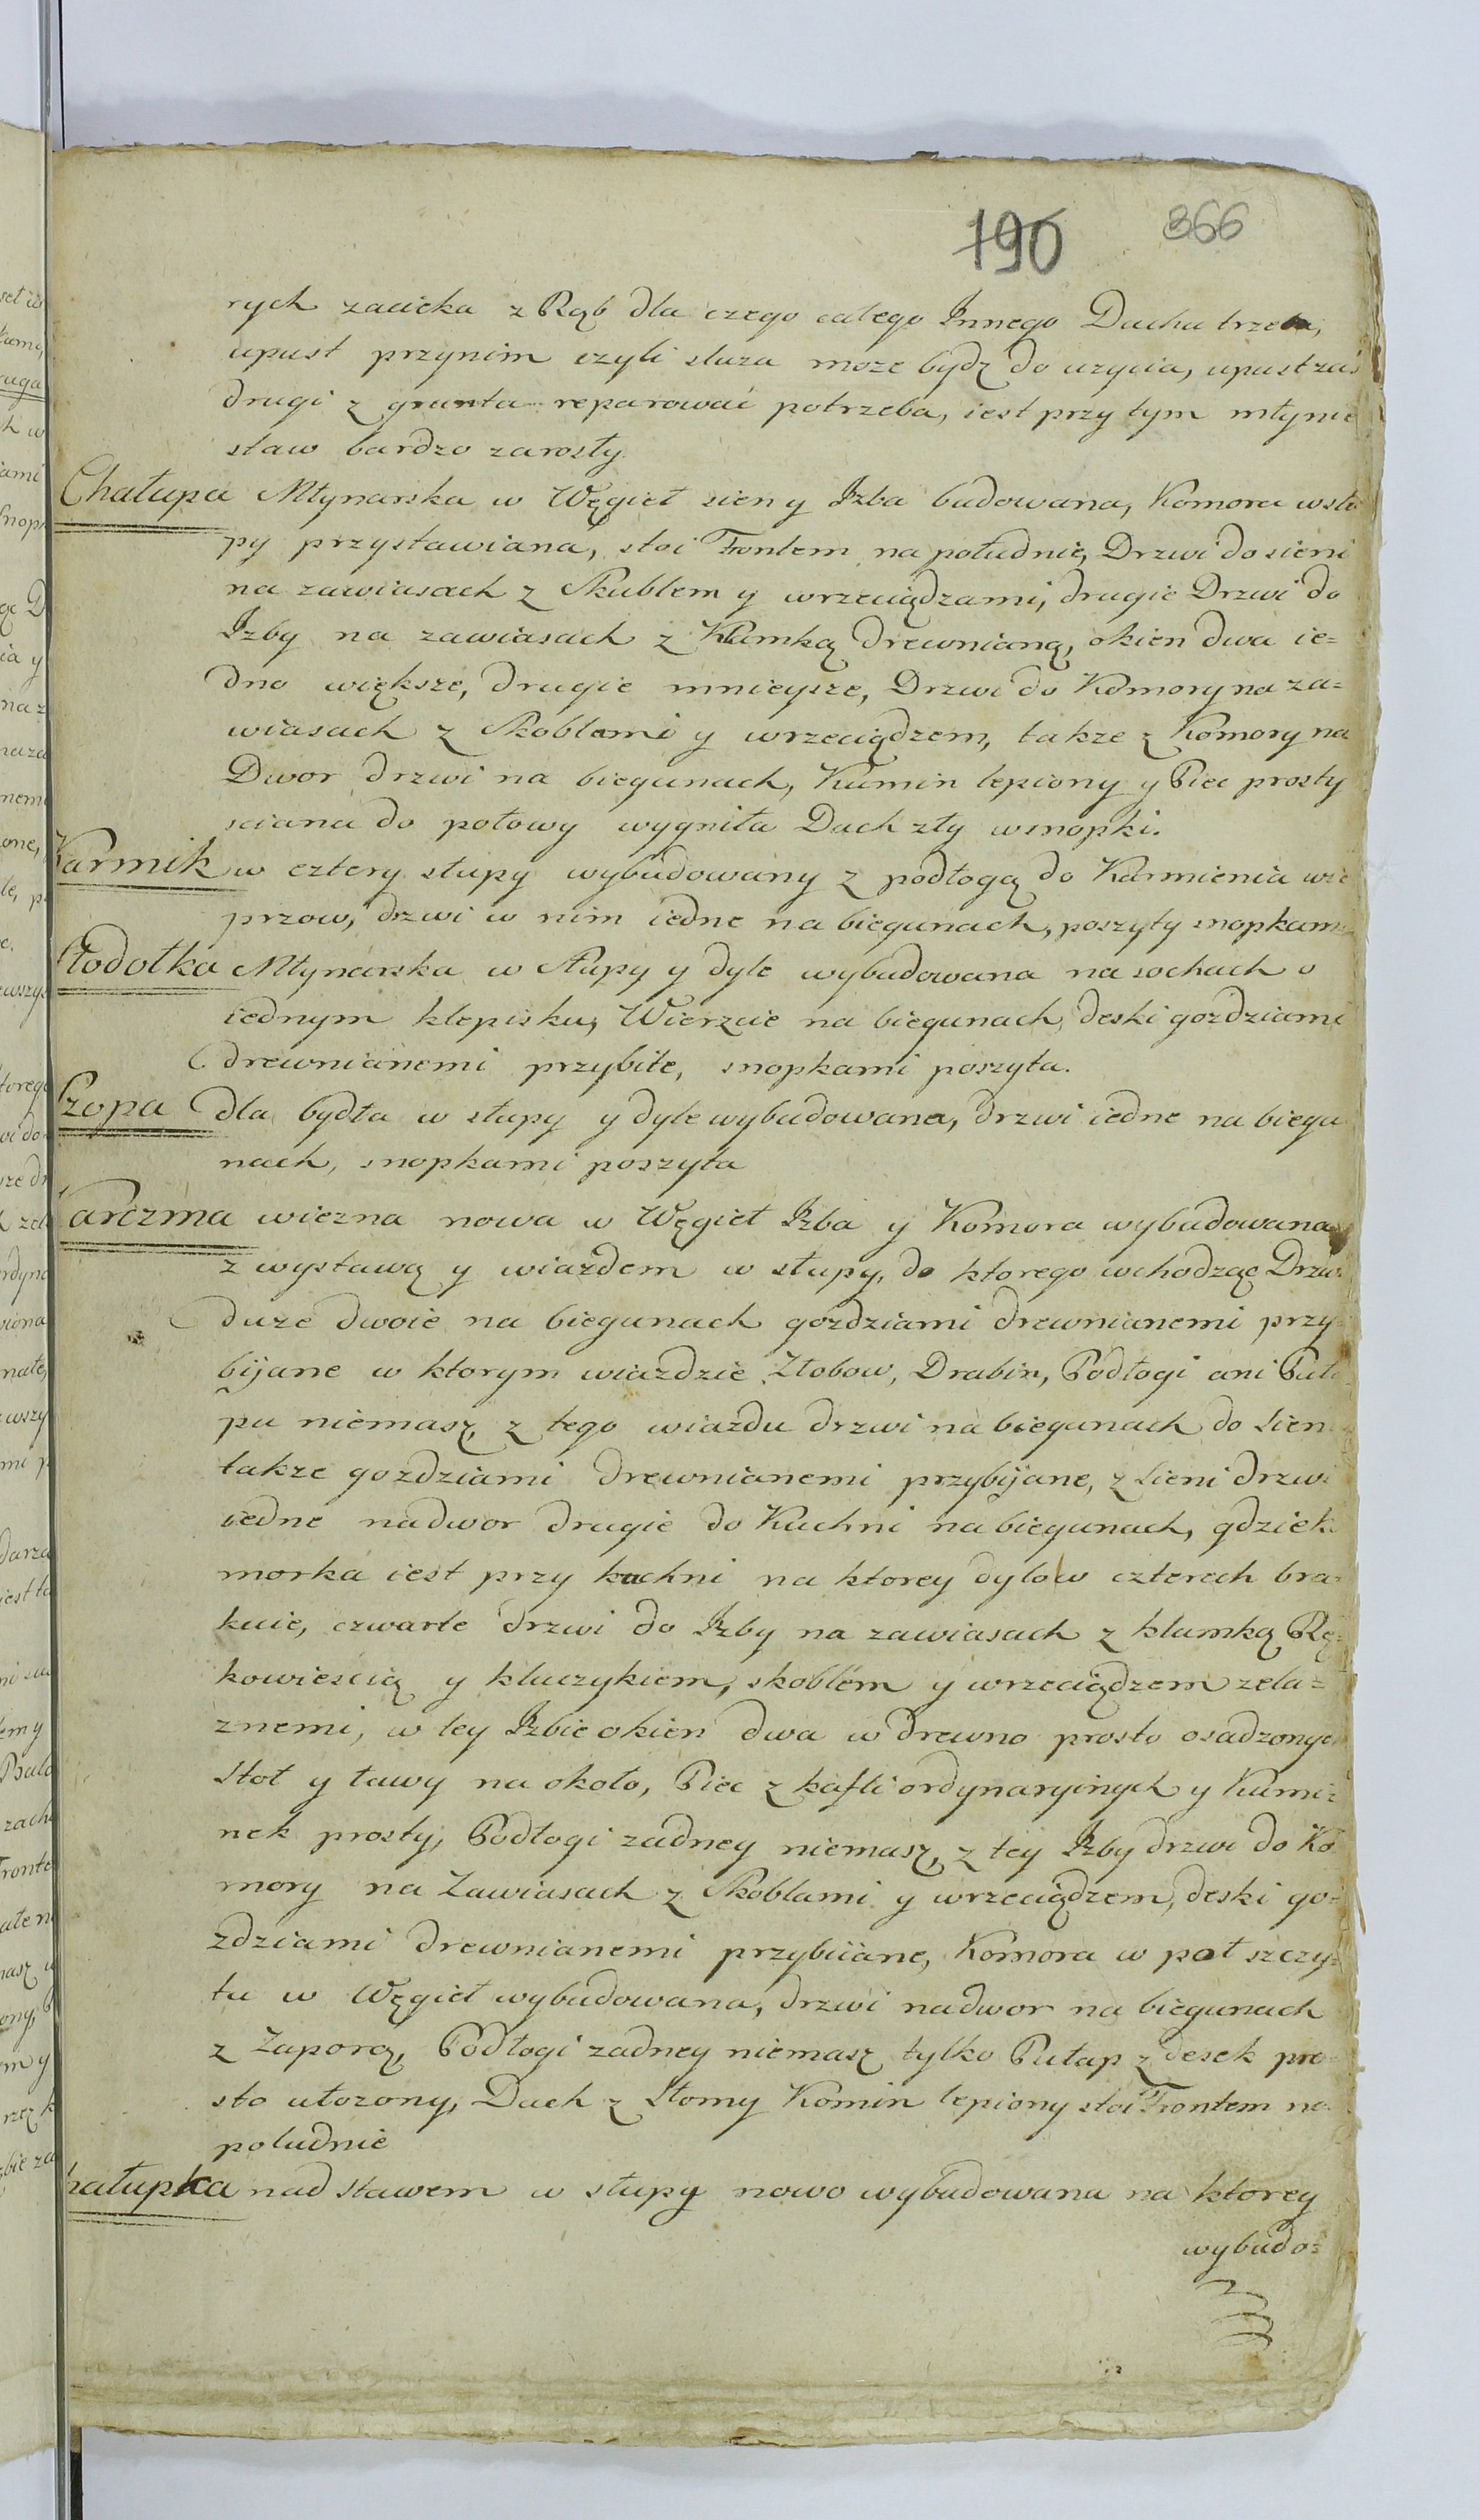 190 366
rych zacieka z Rąb dla czego całego Innego Dachu trzeba,
upust przynim czyli sluza moze bydz do uzycia, upust zaś
drugi z grunta reparować potrzeba, iest przy tym młynie
staw bardzo zarosły.
Chałupa Młynarska w Węgieł sien y Izba budowana, Komora wsłu
py przystawiana, stoi Frontem na południe, Drzwi do sieni
na zawiasach z Skublem y wrzeciądzami, drugie Drzwi do
Izby na zawiasach z Klamką drewnianą, okien dwa ie=
dno większe, drugie mnieysze, Drzwi do Komory na za=
wiasach z Skoblami y wrzeciądzem, takze z Komory na
Dwor drzwi na biegunach, Kumin lepiony y Piec prosty
sciana do połowy wygniła Dach zły wsnopki.
Karmik w cztery słupy wybudowany z podłogą do Karmienia wie
przow, drzwi w nim iedne na biegunach, poszyty snopkami
Stodołka Młynarska w Słupy y dyle wybudowana na sochach o
iednym klepisku, Wierzcie na biegunach, deski gozdziami
drewnianemi przybite, snopkami poszyta.
Szopa dla bydła w słupy y dyle wybudowana, drzwi iedne na biegu
nach, snopkami poszyta
Karczma wiezna nowa w Węgieł Izba y Komora wybudowana
z wystawą y wiazdem w słupy, do ktorego wchodząc Drzwi
duze dwoie na biegunach gozdziami drewnianemi przy=
bijane w ktorym wiazdzie Złobow, Drabin, Podłogi ani Puła
pu niemasz, z tego wiazdu drzwi na biegunach do Sieni
takze gozdziami drewnianemi przybijane, z Sieni drzwi
iedne nadwor drugie do Kuchni na biegunach, gdzie k
morka iest przy kuchni na ktorey dylow czterech bra=
kuie, czwarte drzwi do Izby na zawiasach z klamką Rę=
kowieścią y kluczykiem, skoblem y wrzeciądzem zela=
znemi, w tey Izbie okien dwa w drewno prosto osadzonych
Stoł y ławy na około, Piec z kafli ordynaryinych y Kumi=
nek prosty, Podłogi zadney niemasz, z tey Izby drzwi do Ko
mory na Zawiasach z Skoblami y wrzeciądzem, deski go=
zdziami drewnianemi przybiiane, Komora w poł szczy=
tu w Węgieł wybudowana, drzwi nadwor na biegunach
z Zaporą, Podłogi zadney niemasz tylko Pułap z desek pro=
sto ułozony, Dach z Słomy Komin lepiony stoi Frontem na
południe
hałupka nad stawem w słupy nowo wybudowana na ktorey
wybudo=